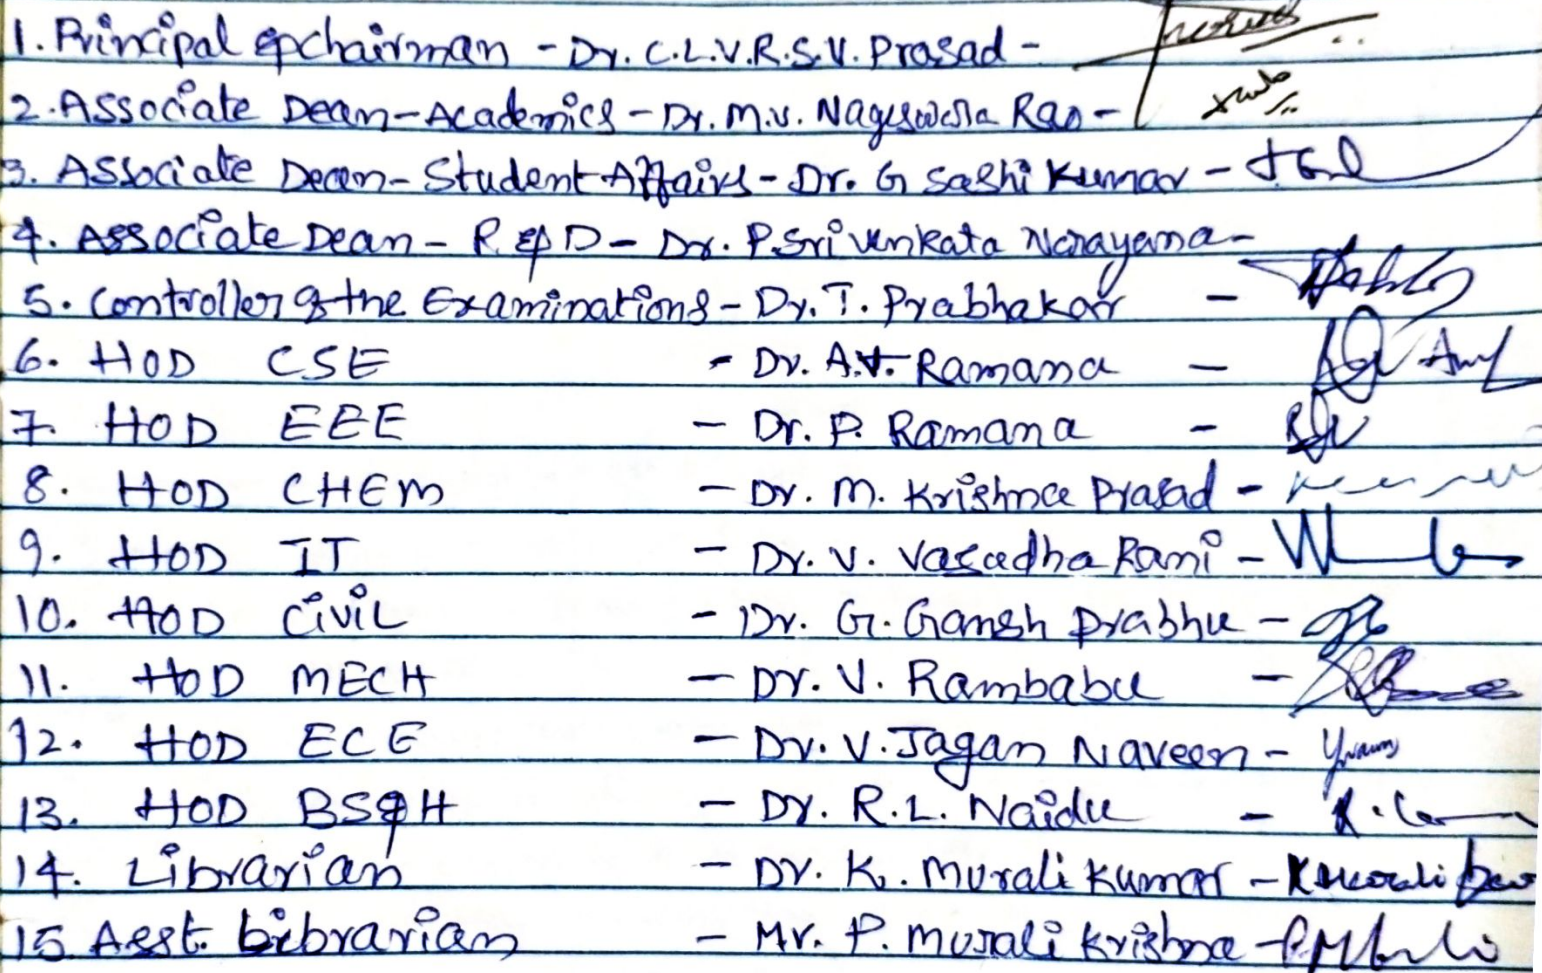 1. Principal & chairman - Dr. C.L.V.R.S.V. Prasad -
2. Associate Dean - Academics - Dr. M.V. Nageswara Rao -
3. Associate Dean - Student Affairs - Dr. G Sashi Kumar -
4. Associate Dean - R & D - Dr. P. Sri Venkata Narayana -
5. Controller of the Examinations - Dr. T. Prabhakar -
6. HOD CSE - Dr. A.V. Ramana -
7. HOD EEE - Dr. P. Ramana -
8. HOD CHEM - Dr. M. Krishna Prasad -
9. HOD IT - Dr. V. Vasudha Rani -
10. HOD CIVIL - Dr. G. Gansh prabhu -
11. HOD MECH - Dr. V. Rambabu -
12. HOD ECE - Dr. V. Jagan Naveen -
13. HOD BS&H - Dr. R.L. Naidu -
14. Librarian - Dr. K. Murali Kumar -
15. Asst. Librarian - Mr. P. Murali Krishna -